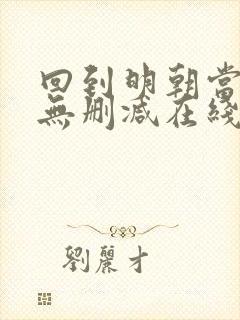 回到明朝當
無刪減在綫
劉麗才